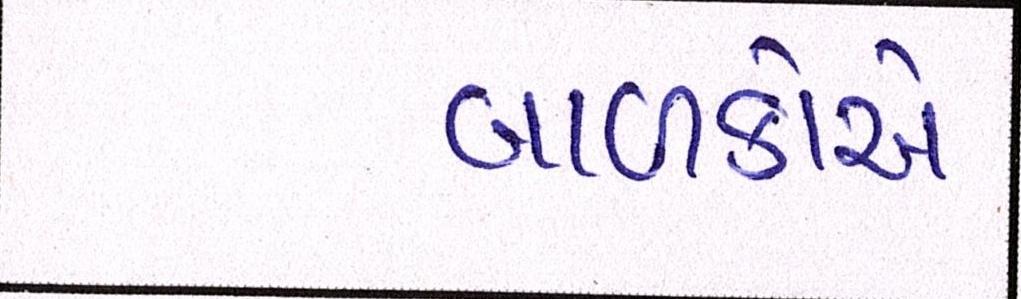 બાળકોએ